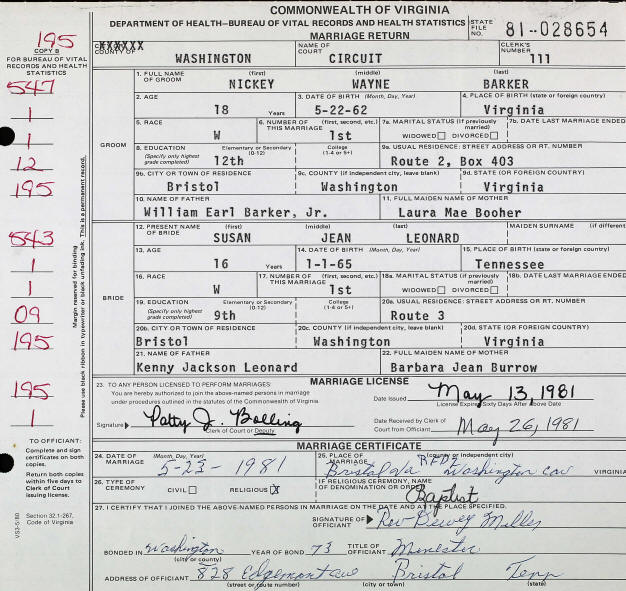 COMMONWEALTH OF VIRGINIA
DEPARTMENT OF HEALTH—BUREAU OF VITAL RECORDS AND HEALTH STATISTICS
MARRIAGE RETURN
STATE FILE NO. 81--028654
195
COPY B
FOR BUREAU OF VITAL RECORDS AND HEALTH STATISTICS
COUNTY OF WASHINGTON
NAME OF COURT CIRCUIT
CLERK'S NUMBER 111
547
1
1
12
195
543
1
1
09
195
195
1
Margin reserved for binding
Please use black ribbon in typewriter or black unfading ink. This is a permanent record.
GROOM
1. FULL NAME OF GROOM (first) (middle) (last)
NICKEY WAYNE BARKER
2. AGE 18 Years
3. DATE OF BIRTH (Month, Day, Year) 5-22-62
4. PLACE OF BIRTH (state or foreign country) Virginia
5. RACE W
6. NUMBER OF THIS MARRIAGE (first, second, etc.) 1st
7a. MARITAL STATUS (If previously married) WIDOWED DIVORCED
7b. DATE LAST MARRIAGE ENDED
8. EDUCATION (Specify only highest grade completed) Elementary or Secondary (0-12) College (1-4 or 5+) 12th
9a. USUAL RESIDENCE: STREET ADDRESS OR RT. NUMBER Route 2, Box 403
9b. CITY OR TOWN OF RESIDENCE Bristol
9c. COUNTY (If independent city, leave blank) Washington
9d. STATE (OR FOREIGN COUNTRY) Virginia
10. NAME OF FATHER William Earl Barker, Jr.
11. FULL MAIDEN NAME OF MOTHER Laura Mae Booher
BRIDE
12. PRESENT NAME OF BRIDE (first) (middle) (last) MAIDEN SURNAME (if different
SUSAN JEAN LEONARD
13. AGE 16 Years
14. DATE OF BIRTH (Month, Day, Year) 1-1-65
15. PLACE OF BIRTH (state or foreign country) Tennessee
16. RACE W
17. NUMBER OF THIS MARRIAGE (first, second, etc.) 1st
18a. MARITAL STATUS (If previously married) WIDOWED DIVORCED
18b. DATE LAST MARRIAGE ENDED
19. EDUCATION (Specify only highest grade completed) Elementary or Secondary (0-12) College (1-4 or 5+) 9th
20a. USUAL RESIDENCE: STREET ADDRESS OR RT. NUMBER Route 3
20b. CITY OR TOWN OF RESIDENCE Bristol
20c. COUNTY (If independent city, leave blank) Washington
20d. STATE (OR FOREIGN COUNTRY) Virginia
21. NAME OF FATHER Kenny Jackson Leonard
22. FULL MAIDEN NAME OF MOTHER Barbara Jean Burrow
MARRIAGE LICENSE
23. TO ANY PERSON LICENSED TO PERFORM MARRIAGES:
You are hereby authorized to join the above-named persons in marriage
under procedures outlined in the statutes of the Commonwealth of Virginia.
Date Issued May 13, 1981
License Expires Sixty Days After Above Date
Signature Patty J. Bolling
Clerk of Court or Deputy
Date Received by Clerk of Court from Official May 26, 1981
TO OFFICIANT:
Complete and sign certificates on both copies.
Return both copies within five days to Clerk of Court issuing license.
Section 32.1-267, Code of Virginia
VS3-5/80
MARRIAGE CERTIFICATE
24. DATE OF MARRIAGE (Month, Day, Year) 5-23-1981
25. PLACE OF MARRIAGE (county or independent city) Bristol Va RFD2 Washington VIRGINIA
26. TYPE OF CEREMONY CIVIL RELIGIOUS X
IF RELIGIOUS CEREMONY, NAME OF DENOMINATION OR ORDER Baptist
27. I CERTIFY THAT I JOINED THE ABOVE-NAMED PERSONS IN MARRIAGE ON THE DATE AND AT THE PLACE SPECIFIED.
SIGNATURE OF OFFICIANT Rev Dewey
BONDED IN Washington (city or county) YEAR OF BOND 73 TITLE OF OFFICIANT Minister
ADDRESS OF OFFICIANT 828 Edgemont ave Bristol Tenn
(street or route number) (city or town) (state)